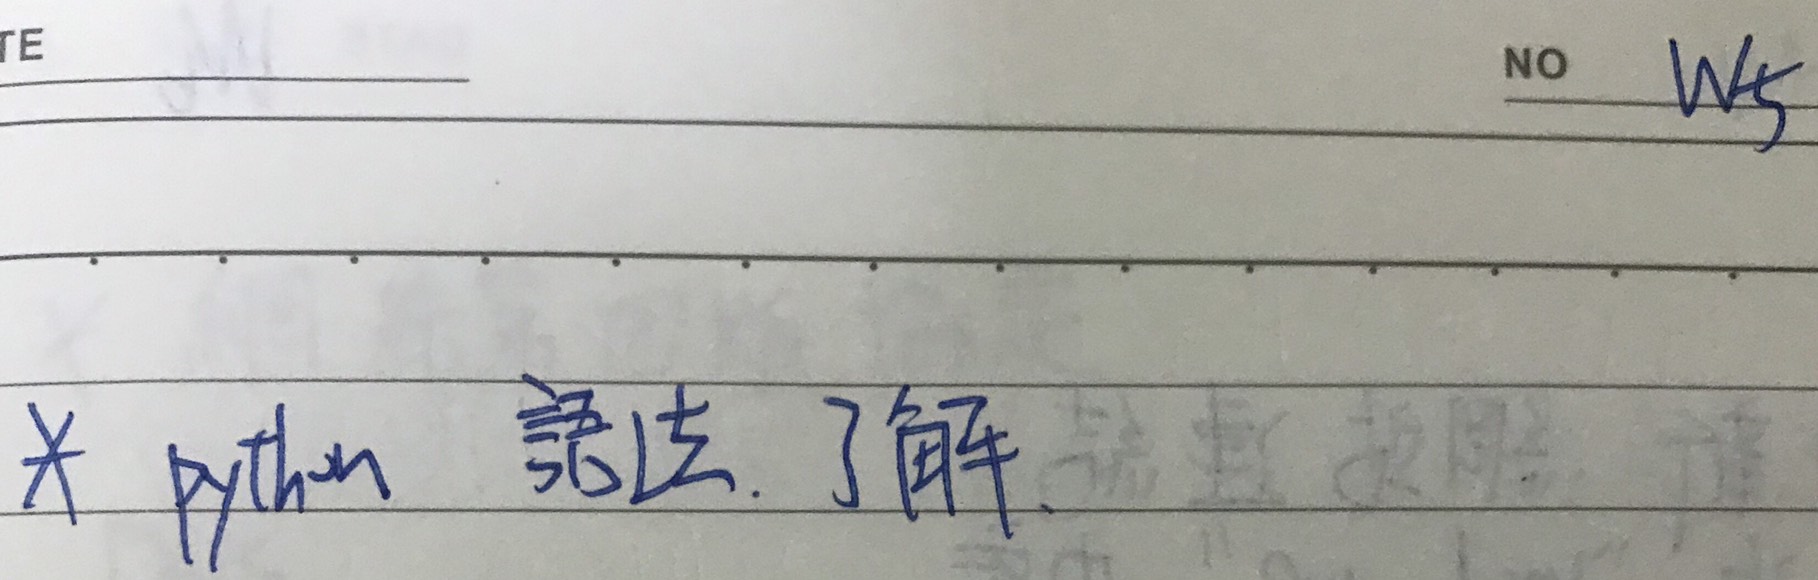 TE
NO W5
* python 語法. 了解.